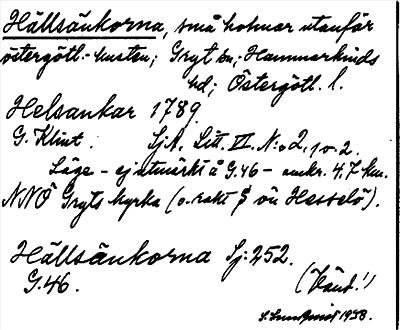 Hällsänkorna, små holmar utanför
östergötl.-kusten; Gryt sn; Hammarkinds
hd; Östergötl. l.
Helsankar 1789.
G. Klint. SjA. Litt. VI. N:o 2, 1 o. 2.
Läge - ej utmärkt å G.46 - omkr. 4.7 km.
NNÖ Gryts kyrka (o. rakt Ö om Hesselö).
Hällsänkorna Sj: 252.
G.46. (Vänd!)
S. Lundquist 1938.